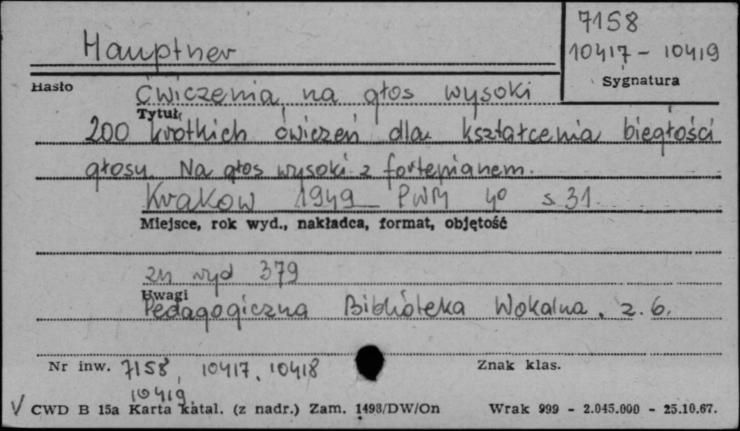 7158
Hauptner
10417 - 10419
Hasło
Sygnatura
Ćwiczenia na głos wysoki
Tytuł
200 krótkich ćwiczeń dla kształcenia biegłości
głosu. Na głos wysoki z fortepianem.
Kraków 1949 PWM 4° s 31
Miejsce, rok wyd., nakładca, format, objętość
zn wyd 379
Uwagi
Pedagogiczna Biblioteka Wokalna. z. 6.
Nr inw. 7158, 10417, 10418
Znak klas.
10419
V CWD B 15a Karta katal. (z nadr.) Zam. 1493/DW/On Wrak 999 - 2.045.000 - 25.10.67.